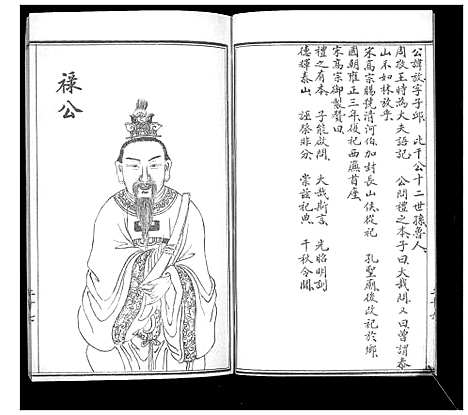 公諱放字子邱比干公十二世孫魯人
周敬王時為大夫語記公問禮之本子曰大哉問又曰曾謂泰
山不如林放乎
宋高宗賜號清河伯加封長山侯從祀孔聖廟後改祀於鄉
國朝雍正三年復祀西廡首座
宋高宗御製贊曰
禮之有本子能啟問大哉斯言光昭明訓
德輝泰山誣祭非分崇茲祀典千秋令聞
祿公